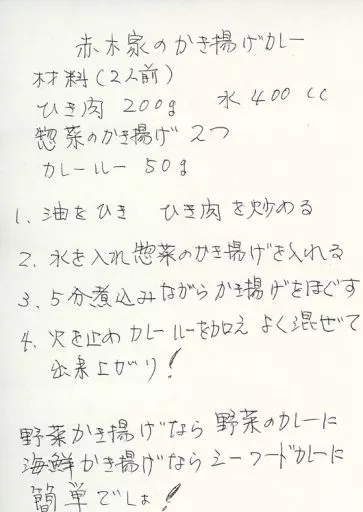 赤木家のかき揚げカレー
材料(2人前)
ひき肉 200g 水 400cc
惣菜のかき揚げ 2つ
カレールー 50g
1. 油をひき ひき肉を炒める
2. 水を入れ惣菜のかき揚げを入れる
3. 5分煮込みながらかき揚げをほぐす
4. 火を止めカレールーを加え よく混ぜて
出来上がり!
野菜かき揚げなら野菜のカレーに
海鮮かき揚げならシーフードカレーに
簡単でしょ!